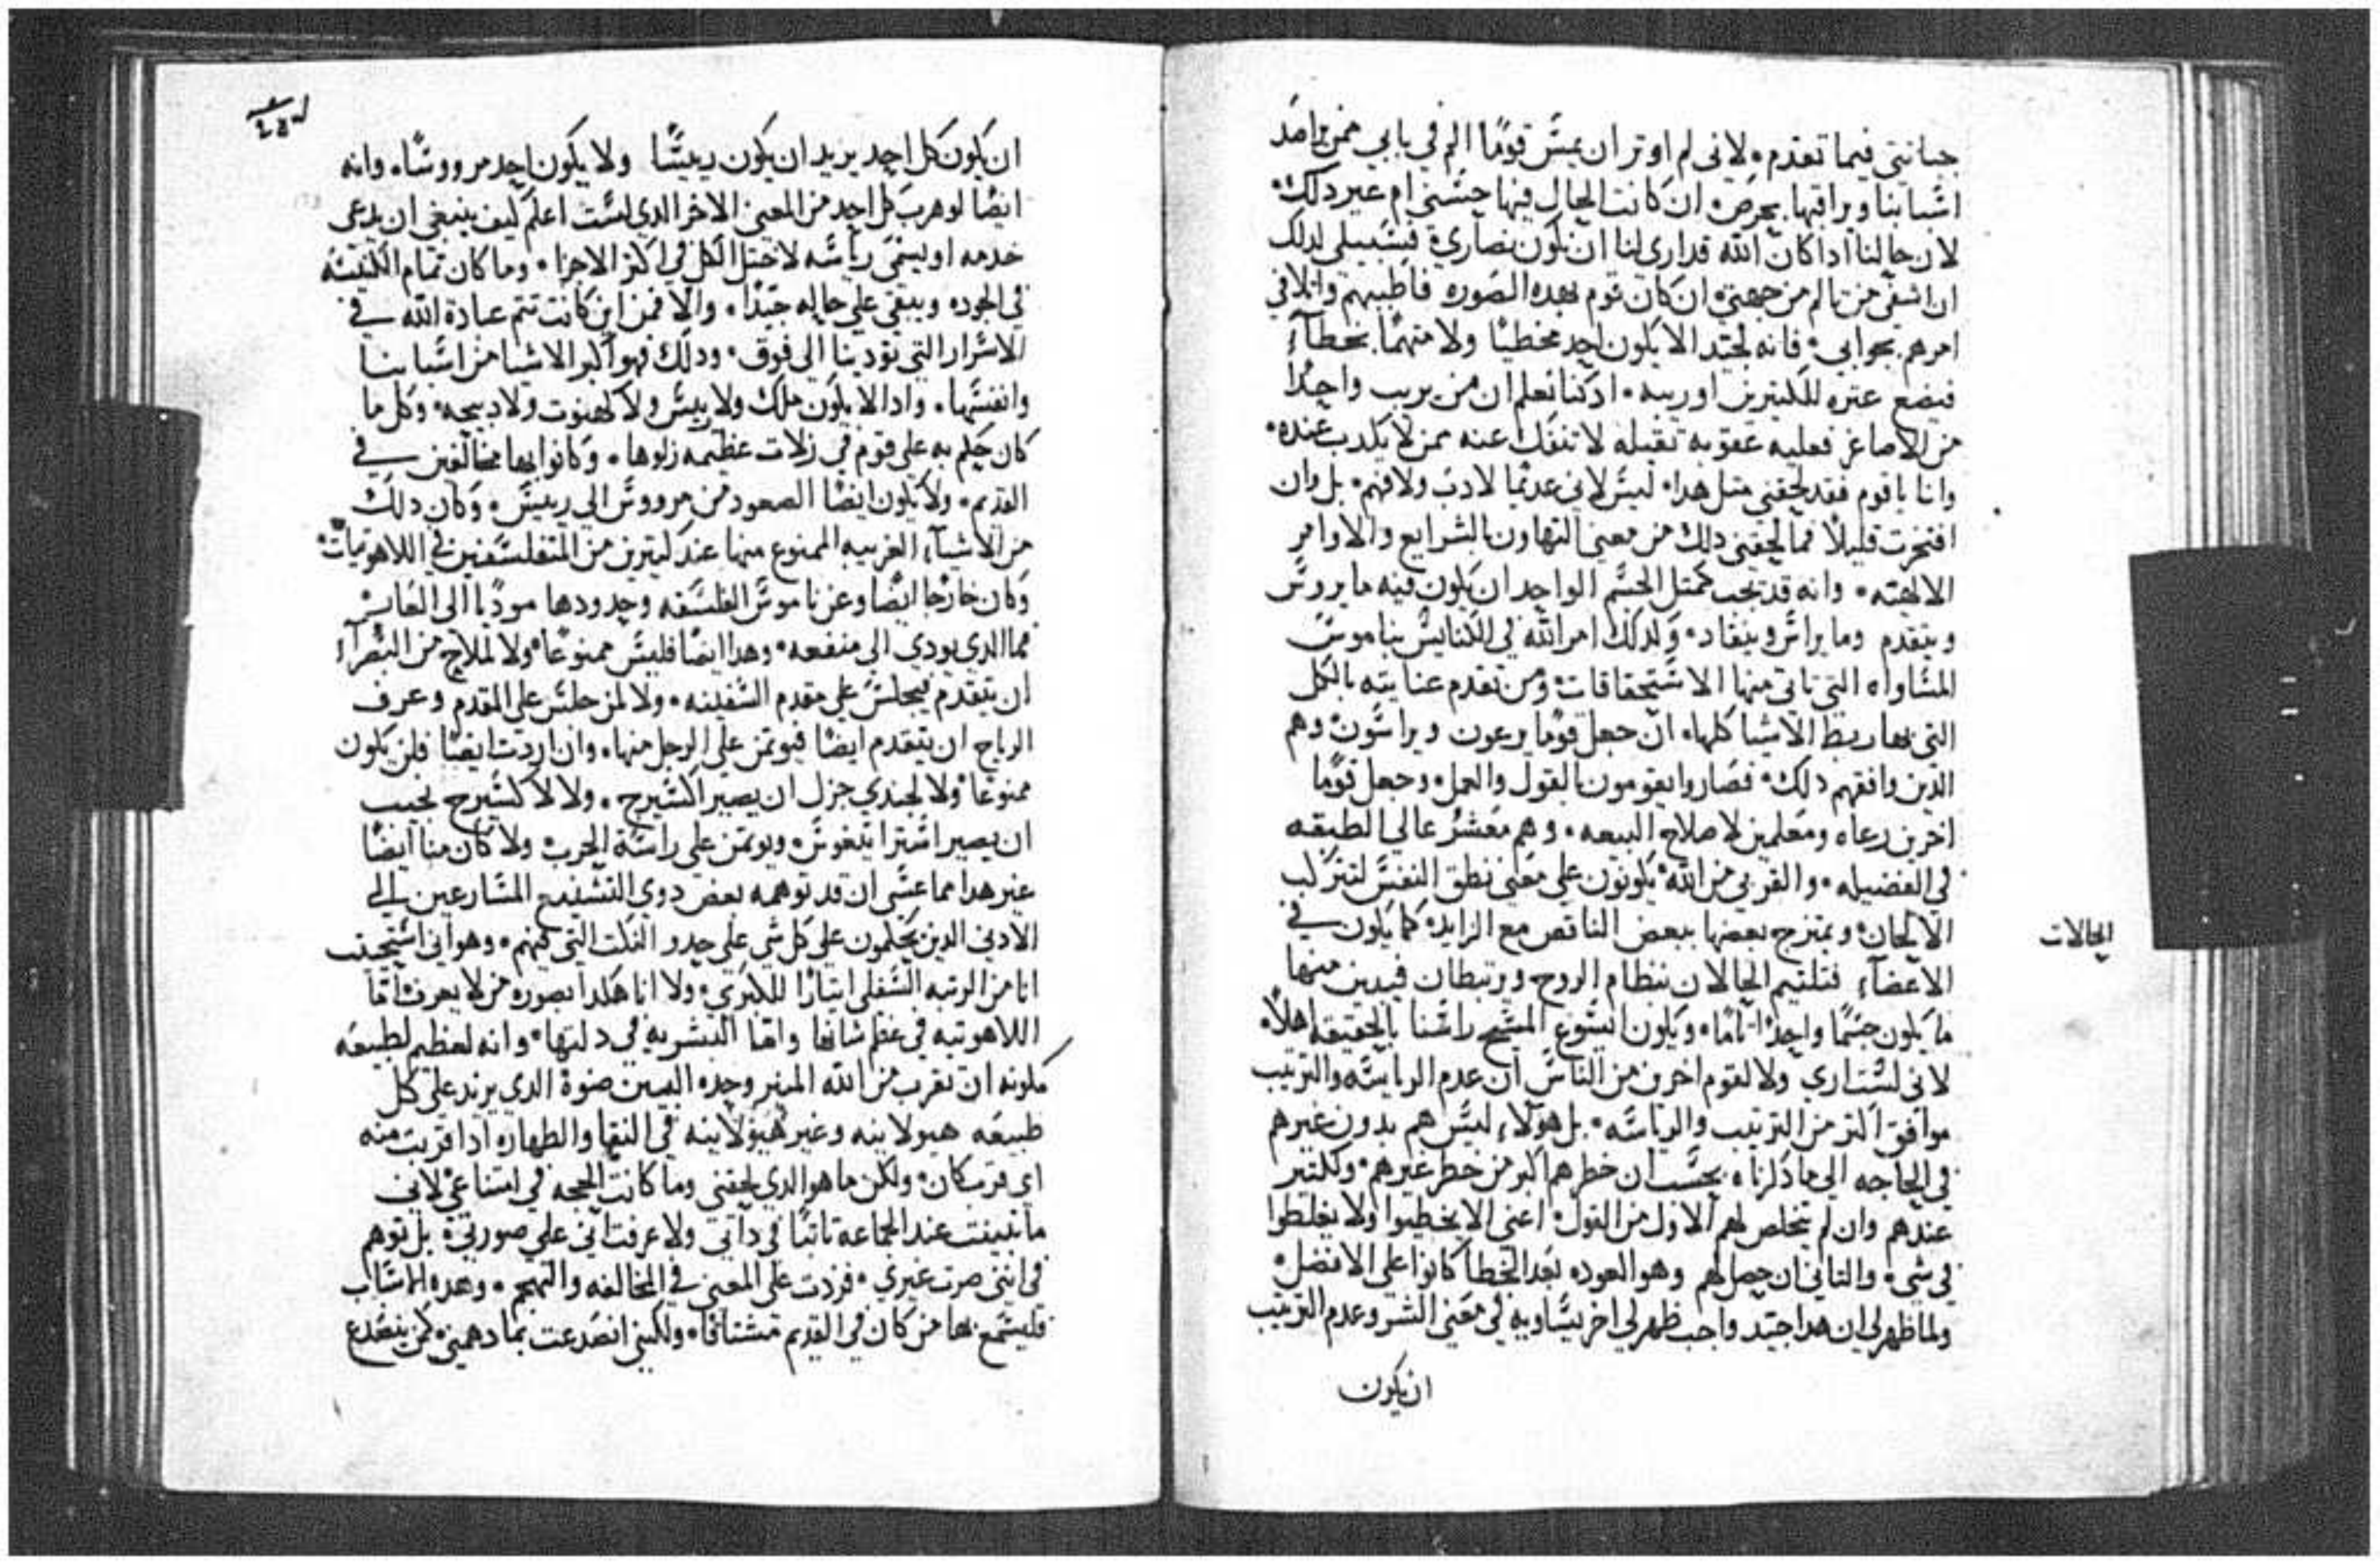 جبانتي فيما تقدم، لاني لم اوثر ان يمس قومًا الم في بابي ممن يراصد
اسبابنا ويراقبها بحرص، ان كانت الحال فيها حسني ام غير دلك،
لان حالنا ادا كان الله قد اري لنا ان نكون نصاري، فسبيلي لدلك
ان اشفي من تالم من جهتي، ان كان قوم بهده الصوره فاطبهم واتلافي
امرهم بجوابي، فانه لجيد الا يكون احد مخطيًا ولا متهمًا بخطاءٍ
فيضع عتره للكتيرين او ريبه، اد كنا نعلم ان من يريب واحدًا
من الاصاغر فعليه عقوبه تقيله لا تنفك عنه ممن لا يكدب عنده،
وانا ياقوم فقد لحقني متل هدا، ليس لاني عديمًا لادب ولا فهم، بل وان
افتخرت قليلاً فما لحقني دلك من معني التهاون بالشرايع والاوامر
الالهيه، وانه قد يجب كمتل الجسم الواحد ان يكون فيه ما يروس
ويتقدم وما يراس وينقاد، ولدلك امر الله في الكنايس بناموس
المساواه التي تاتي منها الاستحقاقات ومن تقدم عنايته بالكل
التي بها ربط الاشيا كلها، ان جعل قومًا يرعون ويراسون وهم
الدين وافقهم دلك، فصاروا يقومون بالقول والعمل، وجعل قومًا
اخرين رعاه ومعلمين لاصلاح البيعه، وهم معشرٌ عالي الطبقه
في الفضيله، والقربي من الله، يكونون علي معني نطق النفس لتتركب
الالحان، ويمتزج بعضها ببعض الناقص مع الزايد، كما يكون في
الاعضآءِ فتلتيم الحالان بنظام الروح ويرتبطان فيدين منها
ما يكون جسمًا واحدًا تامًا، ويكون ايسوع المسيح راسنا بالحقيقه اهلاً،
الحالات
لاني لست اري ولا لقوم اخرين من الناس ان عدم الرياسه والترتيب
موافق اكتر من الترتيب والرياسه، بل هولاءِ ليس هم بدون غيرهم
في الحاجه الي ما دكرناه بحسب ان خطرهم اكبر من خطر غيرهم، وكلتير
عندهم وان لم يتخلص لهم الاول من القول، اعني الا يخطيوا ولا يغلطوا
في شي، والتاني ان حصل لهم وهو العوده بعد الخطا كانوا علي الافضل،
ولما ظهر لي ان هدا جيد واجب ظهر لي اخر يساويه في معني الشر وعدم الترتيب
ان يكون
ان يكون كل احد يريد ان يكون رييسًا ولا يكون احد مرووسًا، وانه
ايضًا لو هرب كل احد من المعني الاخر الدي لست اعلم كيف ينبغي ان يدعي
خدمه او ليسمي رياسه لاختل الكل في اكتر الاجزا، وما كان تمام الكنيسه
في الجوده ويبقي علي حاله جيدًا، والا فمن اين كانت تتم عبادة الله في
الاسرار التي تودينا الي فوق، ودلك فهو اكبر الاشيا من اسبابنا
وانفسها، وادا لا يكون ملك ولا رييس ولا كهنوت ولا دبيحه، وكل ما
كان حكم به علي قوم في زلات عظيمه زلوها، وكانوا بها مخالفين في
القديم، ولا يكون ايضًا الصعود من مرووس الي رييس، وكان دلك
من الاشيآءِ الغريبه الممنوع منها عند كتيرين من المتفلسفين في اللاهوتيات،
وكان خارجًا ايضًا وعن ناموس الفلسفه وحدودها موديًا الي العابر
فما الدي يودي الي منفعه، وهدا ايضًا فليس ممنوعًا، ولا لملاح من البصرآءِ
ان يتقدم فيجلس علي مقدم السفينه، ولا لمن جلس علي المقدم وعرف
الرياح ان يتقدم ايضًا فيوتمن علي الرجل منها، وان اردت ايضًا فلن يكون
ممنوعًا ولا لجندي جزل ان يصير اكسيرح، ولا لاكسيرح نجيب
ان يصير استراتيغوس، ويوتمن علي راسة الحرب، ولا كان منا ايضًا
غير هدا مما عسي ان قد توهمه بعض دوي التشنيع المسارعين الي
الادني الدين يحكمون علي كل شي علي حدو النكت التي فيهم، وهو اني استحيت
انا من الرتبه السفلي ايتارًا للكبري، ولا انا هكدا بصورة من لا يعرف، اما
اللاهوتيه في عظم شانها واما البشريه في دلتها، وانه لعظيم لطبيعه
مكونه ان تقرب من الله المنير وحده البهيّ ضوة الدي يزيد علي كل
طبيعه هيولانيه وغير هيولانيه في النقا والطهاره ادا قربت منه
اي قرب كان، ولكن ما هو الدي لحقني وما كانت الحجه في امتناعي، لاني
ما تبينت عند الجماعه تابتًا في داتي ولا عرفت اني علي صورتي، بل توهم
في انني صرت غيري، فزدت علي المعني في المخالفه والتهجم، وهده الاسباب
فليسمع بها من كان في القديم مشتاقًا، ولكنني انصدعت بما دهمني، كمن ينصدع